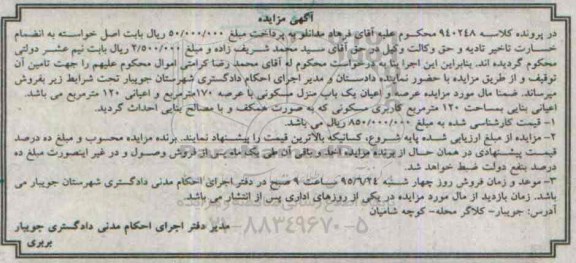 آگهی مزایده
در پرونده کلاسه ۹۴۰۲۴۸ محکوم علیه آقای فرهاد مدانلو به پرداخت مبلغ ۵۰/۰۰۰/۰۰۰ ریال بابت اصل خواسته به انضمام
خسارت تاخیر تادیه و حق وکالت وکیل در حق آقای سید محمد شریف زاده و مبلغ ۲/۵۰۰/۰۰۰ ریال بابت نیم عشر دولتی
محکوم گردیده اند. بنابراین این اجرا بنا به درخواست محکوم له آقای محمد رضا کرامتی اموال محکوم علیهم را جهت تامین آن
توقیف و از طریق مزایده با حضور نماینده دادستان و مدیر اجرای احکام دادگستری شهرستان جویبار تحت شرایط زیر بفروش
میرساند. ضمنا مال مورد مزایده عرصه و اعیان یک باب منزل مسکونی با عرصه ۱۷۰مترمربع و اعیانی ۱۲۰ مترمربع می باشد.
اعیانی بنایی بمساحت ۱۲۰ مترمربع کاربری مسکونی که به صورت همکف و با مصالح بنایی احداث گردید.
۱- قیمت کارشناسی شده به مبلغ ۸۵۰/۰۰۰/۰۰۰ ریال می باشد.
۲- مزایده از مبلغ ارزیابی شده پایه شروع، کسانیکه بالاترین قیمت را پیشنهاد نمایند. برنده مزایده محسوب و مبلغ ده درصد
قیمت پیشنهادی در همان حال از برنده مزایده اخذ و باقی آن طی یک ماه پس از فروش وصول و در غیر اینصورت مبلغ ده
درصد بنفع دولت ضبط خواهد شد.
۳- موعد و زمان فروش روز چهار شنبه ۹۵/۶/۲۴ ساعت ۹ صبح در دفتر اجرای احکام مدنی دادگستری شهرستان جویبار می
باشد. زمان بازدید از مال مورد مزایده در یکی از روزهای اداری پس از انتشار می باشد.
آدرس: جویبار- کلاگر محله- کوچه شامیان
۰۲۱-۸۸۳۴۹۶۷۰-۵
مدیر دفتر اجرای احکام مدنی دادگستری جویبار
بربری